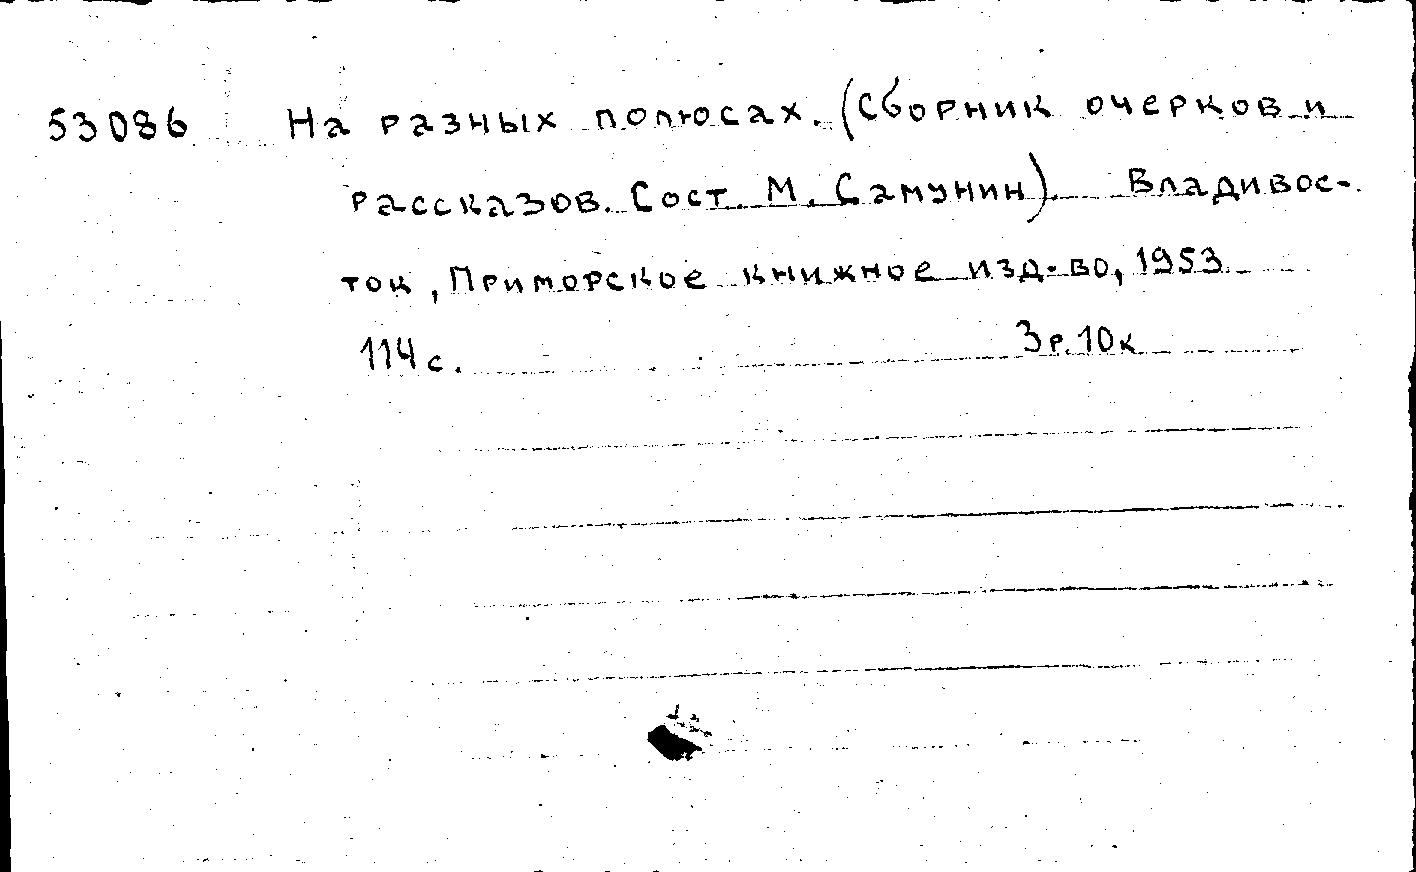 53086 На разных полюсах. (Сборник очерков и
рассказов. Сост. М. Самунин). Владивос-
ток, Приморское книжное изд-во, 1953
114 с. 3р. 10к